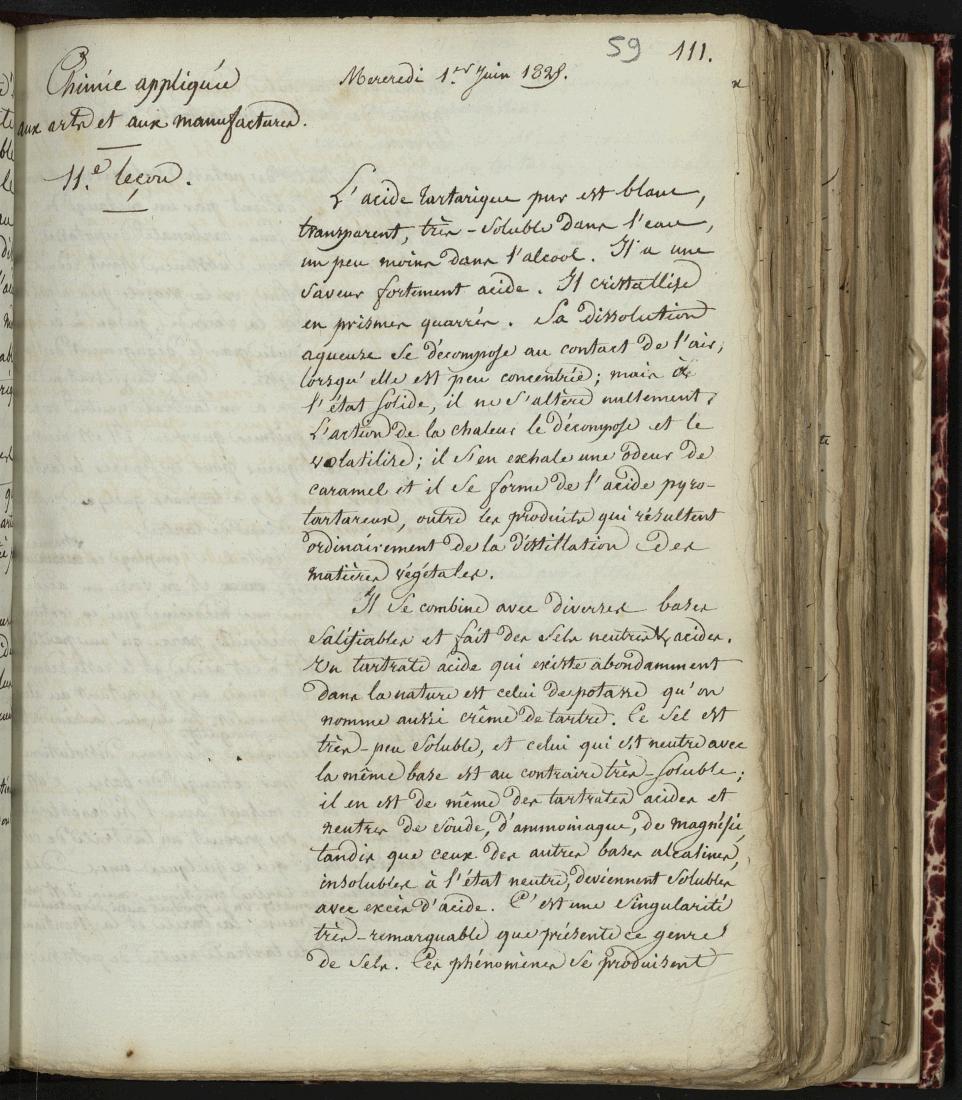 59 111.
Chimie appliquée
aux arts et aux manufactures.
11.e leçon.
Mercredi 1.er Juin 1825.
L'acide tartarique pur est blanc,
transparent, très-soluble dans l'eau,
un peu moins dans l'alcool. Il a une
saveur fortement acide. Il cristallise
en prismes quarrés. Sa dissolution
aqueuse se décompose au contact de l'air,
lorsqu'elle est peu concentrée; mais à
l'état solide, il ne s'altère nullement.
L'action de la chaleur le décompose et le
volatilise; il s'en exhale une odeur de
caramel et il se forme de l'acide pyro-
tartareux, outre les produits qui résultent
ordinairement de la distillation des
matières végétales.
Il se combine avec diverses bases
salifiables et fait des sels neutres & acides.
Un tartrate acide qui existe abondamment
dans la nature est celui de potasse qu'on
nomme aussi crême de tartre. Ce sel est
très-peu soluble, et celui qui est neutre avec
la même base est au contraire très-soluble;
il en est de même des tartrates acides et
neutres de soude, d'ammoniaque, de magnésie,
tandis que ceux des autres bases alcalines,
insolubles à l'état neutre, deviennent solubles
avec excès d'acide. C'est une singularité
très-remarquable que présente ce genre
de sels. Ces phénomènes se produisent